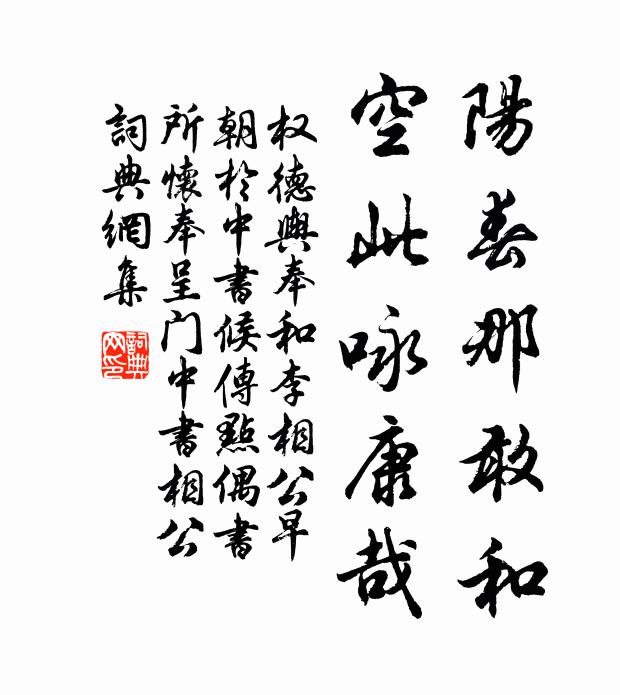 陽春那敢和
空此咏康哉
权德輿奉和李相公早
朝於中書候傳點偶書
所懷奉呈门中書相公
詞典網集
詞典网印